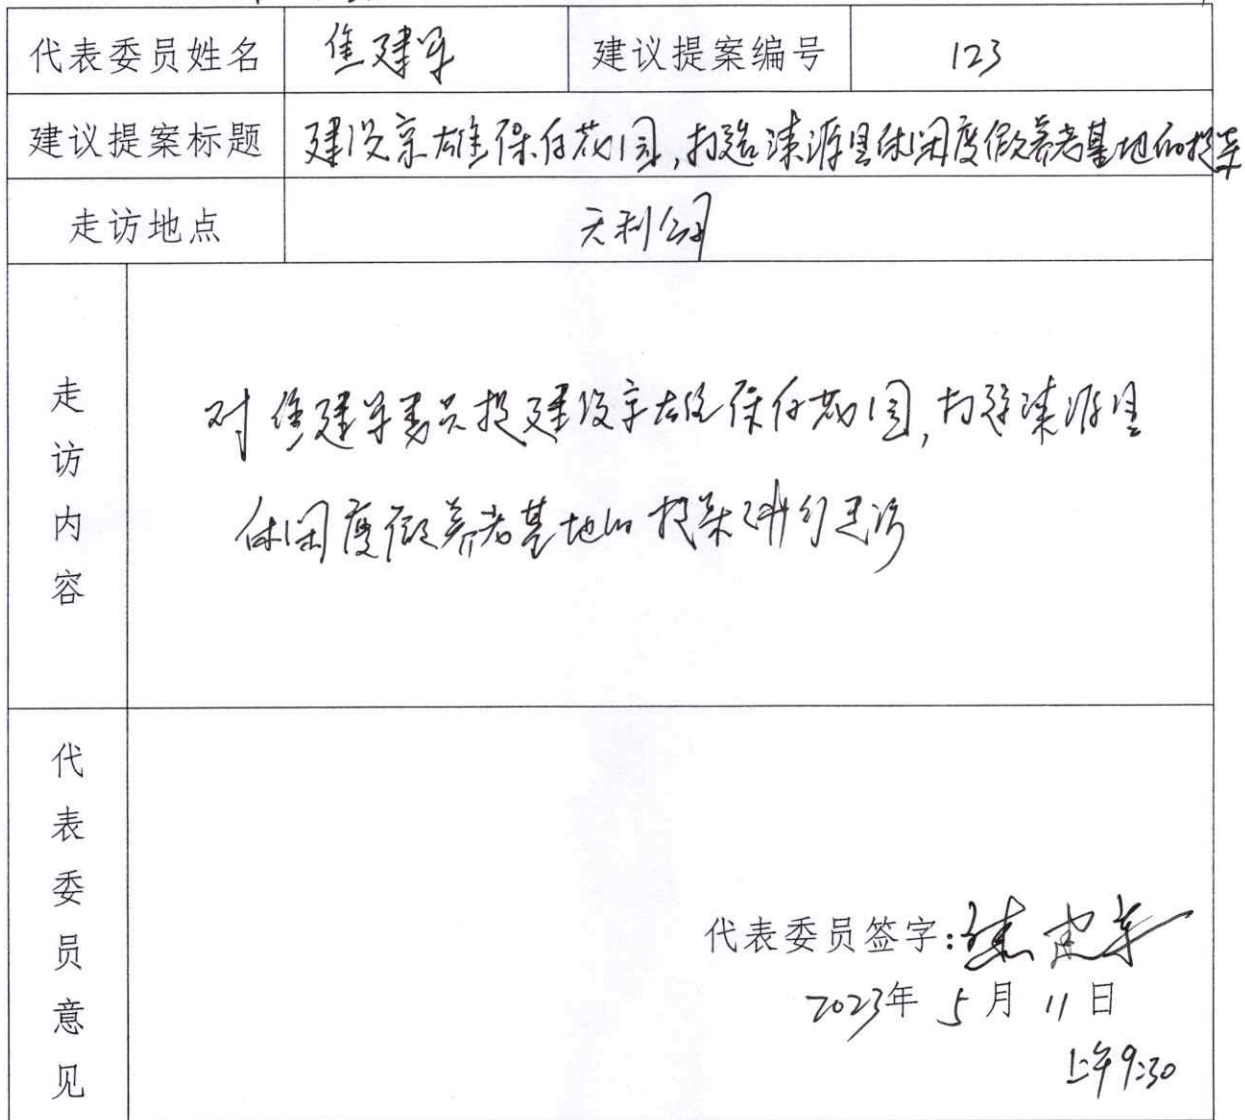 代表委员姓名 焦建军 建议提案编号 123
建议提案标题 建设京雄保后花园,打造涞源县休闲度假养老基地的提案
走访地点 天利公司
走访内容
对焦建军委员提建设京雄保后花园,打造涞源县
休闲度假养老基地的提案进行走访
代表委员意见
代表委员签字:焦建军
2023年 5月 11日
上午9:30